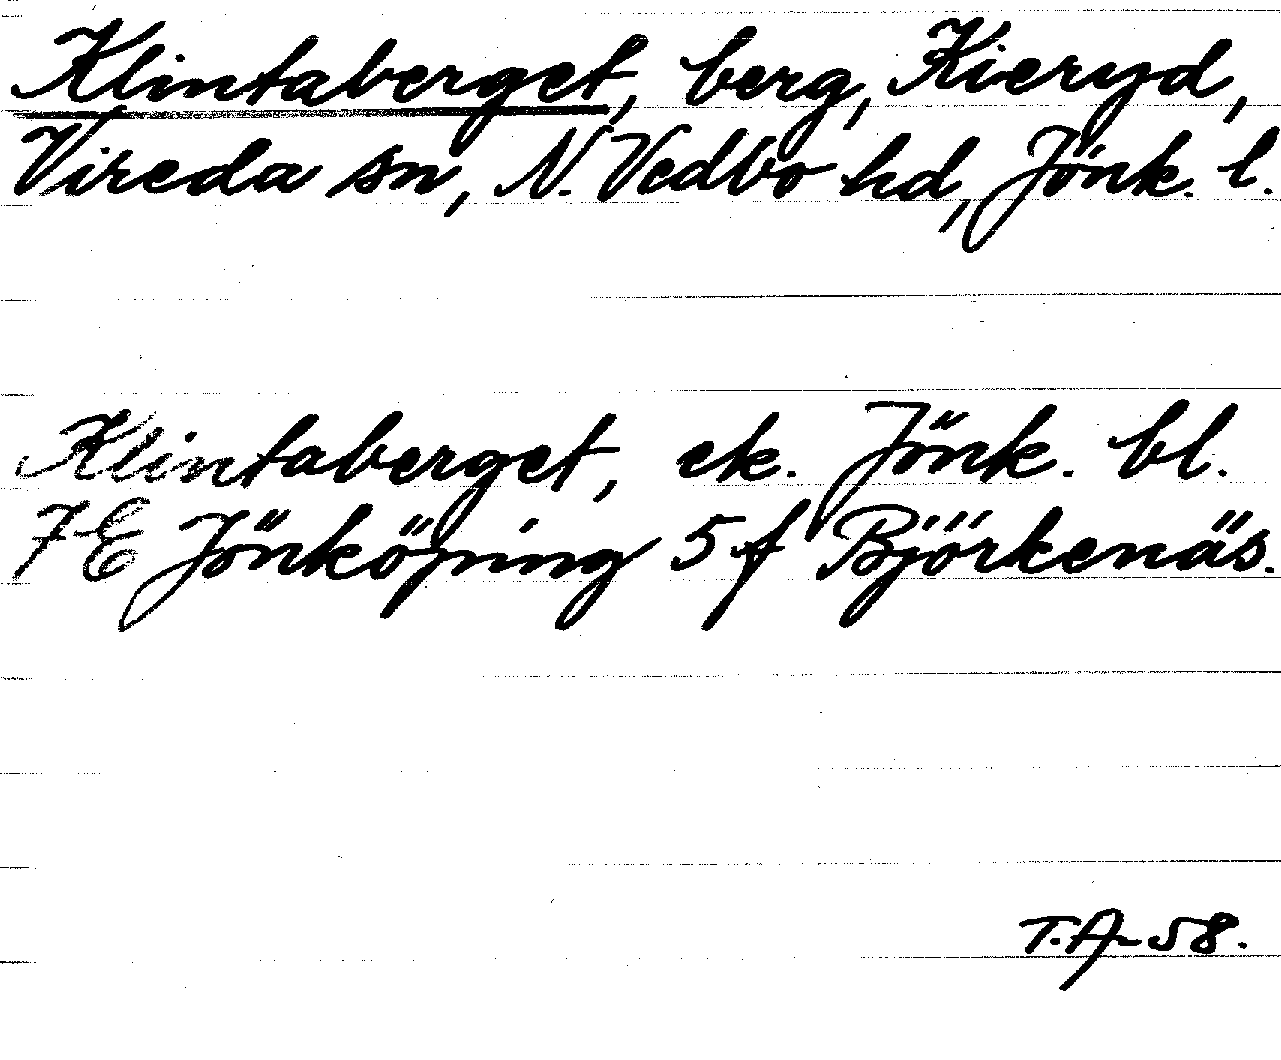 Klintaberget, berg, Kieryd,
Vireda sn, N. Vedbo hd, Jönk. l.
Klintaberget, ek. Jönk. bl.
7E Jönköping 5f Björkenäs.
T.A-58.